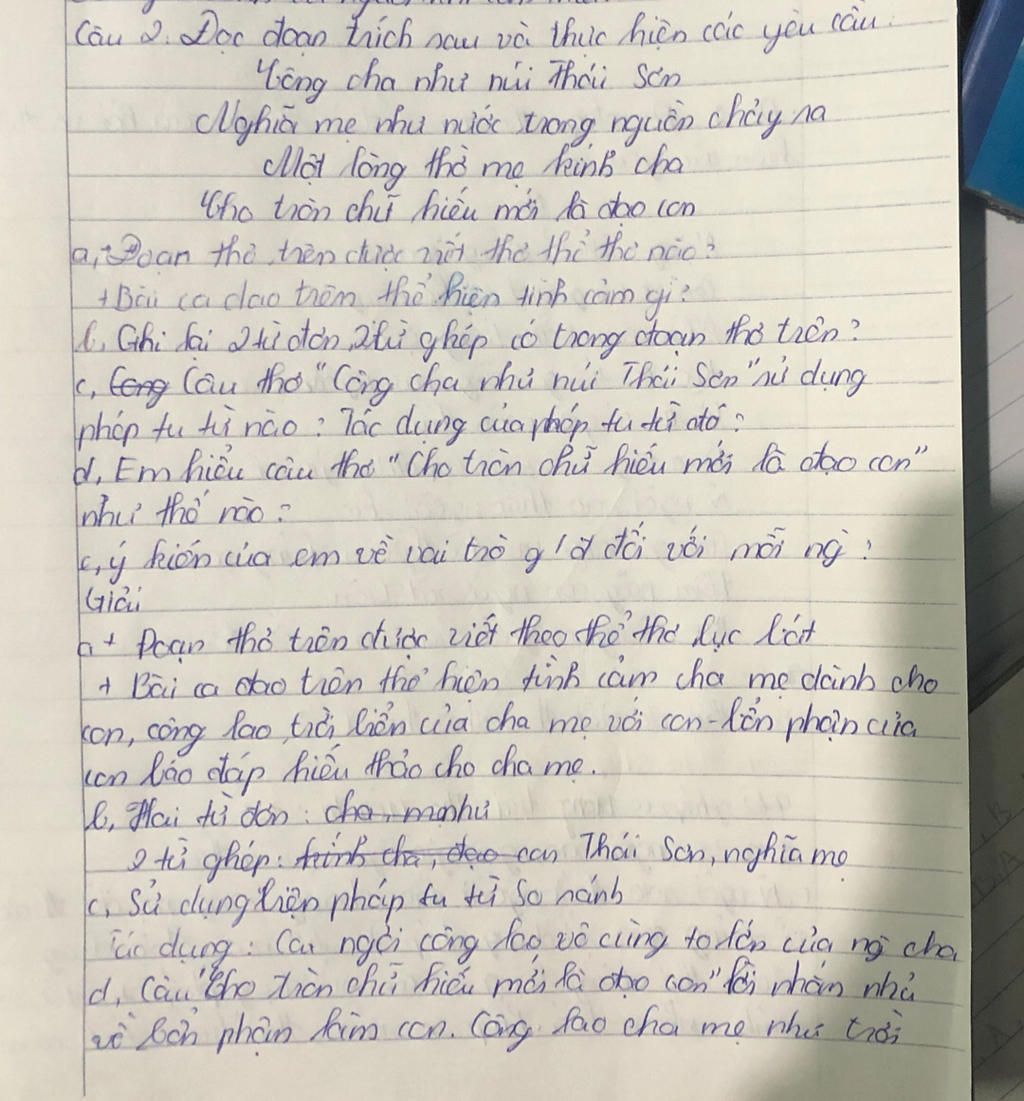 Câu 2. Đọc đoạn trích sau và thực hiện các yêu cầu.
Công cha như núi Thái Sơn
Nghĩa mẹ như nước trong nguồn chảy ra
Một lòng thờ mẹ kính cha
Cho tròn chữ hiếu mới là đạo con
a, + Đoạn thơ trên được viết theo thể thơ nào?
+ Bài ca dao trên thể hiện tình cảm gì?
b, Ghi lại 2 từ đơn, 2 từ ghép có trong đoạn thơ trên?
c, Công Câu thơ "Công cha như núi Thái Sơn" sử dụng
phép tu từ nào? Tác dụng của phép tu từ đó?
d, Em hiểu câu thơ "Cho tròn chữ hiếu mới là đạo con"
như thế nào?
e, ý kiến của em về vai trò g/đ đối với mỗi ng?
Giải
a + Đoạn thơ trên được viết theo thể thơ lục bát
+ Bài ca dao trên thể hiện tình cảm cha mẹ dành cho
con, công lao trời biển của cha mẹ với con - bổn phận của
con báo đáp hiếu thảo cho cha mẹ.
b, Hai từ đơn: cha, mẹ như
2 từ ghép: kính cha, đạo con Thái Sơn, nghĩa mẹ
c, Sử dụng biện pháp tu từ so sánh
Tác dụng: Ca ngợi công lao vô cùng to lớn của ng cha
d, Câu "Cho tròn chữ hiếu mới là đạo con" lời nhắn nhủ
về bổn phận làm con. Công lao cha mẹ như trời